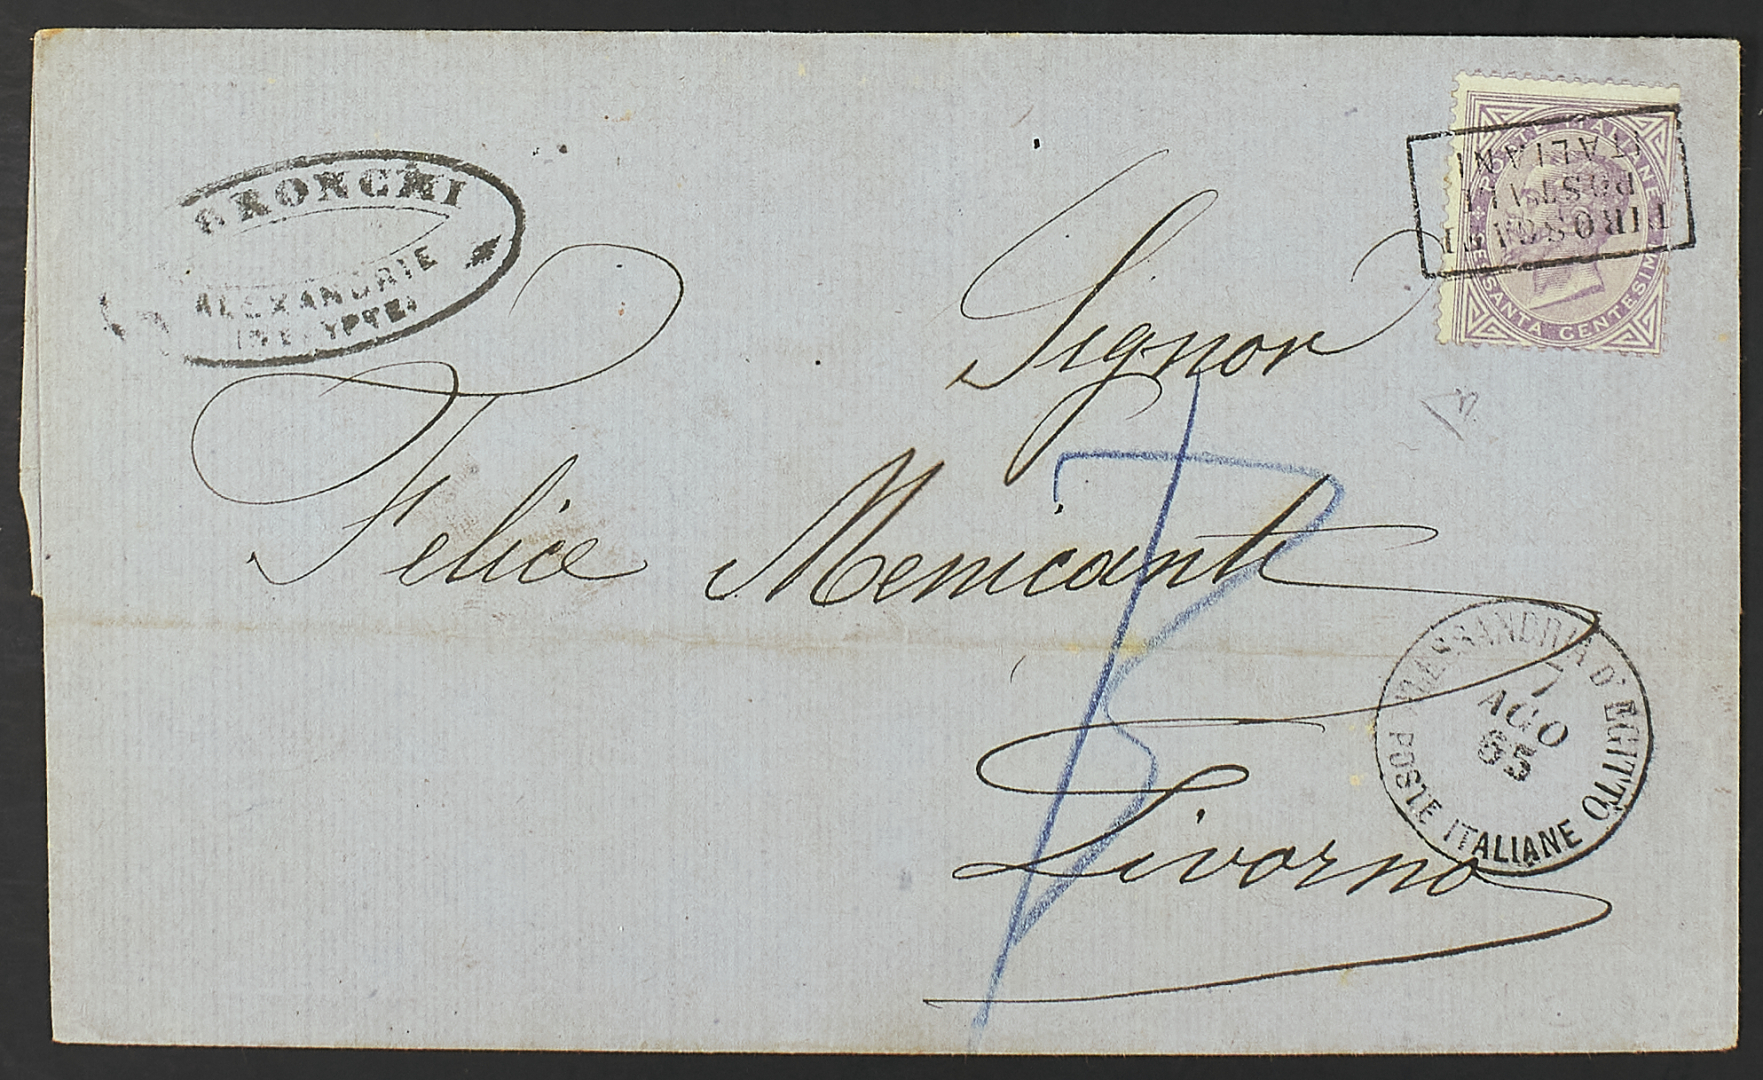 BRONCHI
ALEXANDRIE
(D'EGYPTE)
POSTE ITALIANE
SESSANTA CENTESIMI
PIROSCAFI
POSTALI
ITALIANI
Signor
Felice Menicanti
Livorno
ALESSANDRIA D'EGITTO
7
AGO
65
POSTE ITALIANE